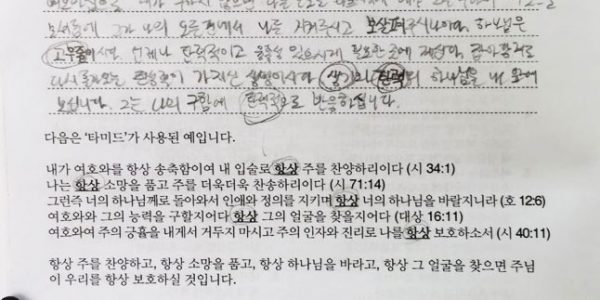 보시는데 그가 나의 오른편에서 나를 지켜주시고 보살펴주시니이다. 하나님은
고무줄이시며 언제나 탄력적이고 있으시게 필요한 중에
다시 돌아오는 가지신 생명이시다. 생기와 탄력의 하나님을 내 앞에
모십니다. 그는 나의 구함에 탄력적으로 반응하십니다.
다음은 '타미드'가 사용된 예입니다.
내가 여호와를 항상 송축함이여 내 입술로 항상 주를 찬양하리이다 (시 34:1)
나는 항상 소망을 품고 주를 더욱더욱 찬송하리이다 (시 71:14)
그런즉 너의 하나님께로 돌아와서 인애와 정의를 지키며 항상 너의 하나님을 바랄지니라 (호 12:6)
여호와와 그의 능력을 구할지어다 항상 그의 얼굴을 찾을지어다 (대상 16:11)
여호와여 주의 긍휼을 내게서 거두지 마시고 주의 인자와 진리로 나를 항상 보호하소서 (시 40:11)
항상 주를 찬양하고, 항상 소망을 품고, 항상 하나님을 바라고, 항상 그 얼굴을 찾으면 주님
이 우리를 항상 보호하실 것입니다.